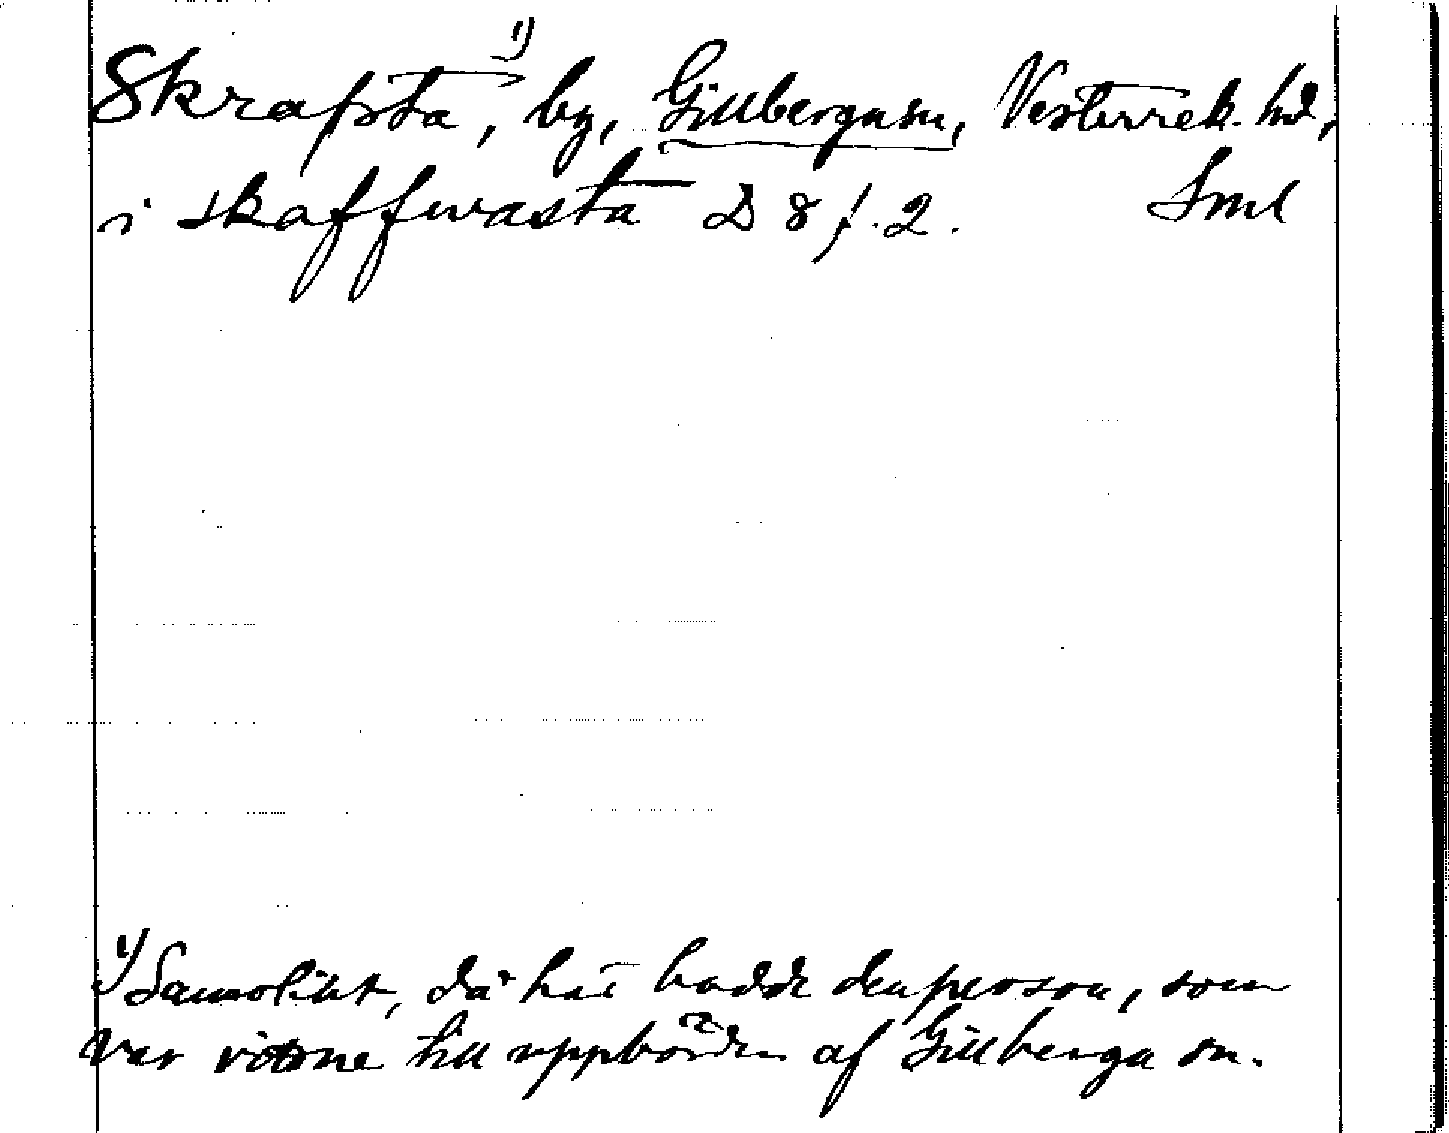 Skrapsta ¹⁾, by, Gillberga sn, Vesterrek. hd,
i skaffwasta D 8 f. 2. Sml
¹⁾ Sannolikt, då här bodde den person, som
var vittne till uppbörden af Gillberga sn.